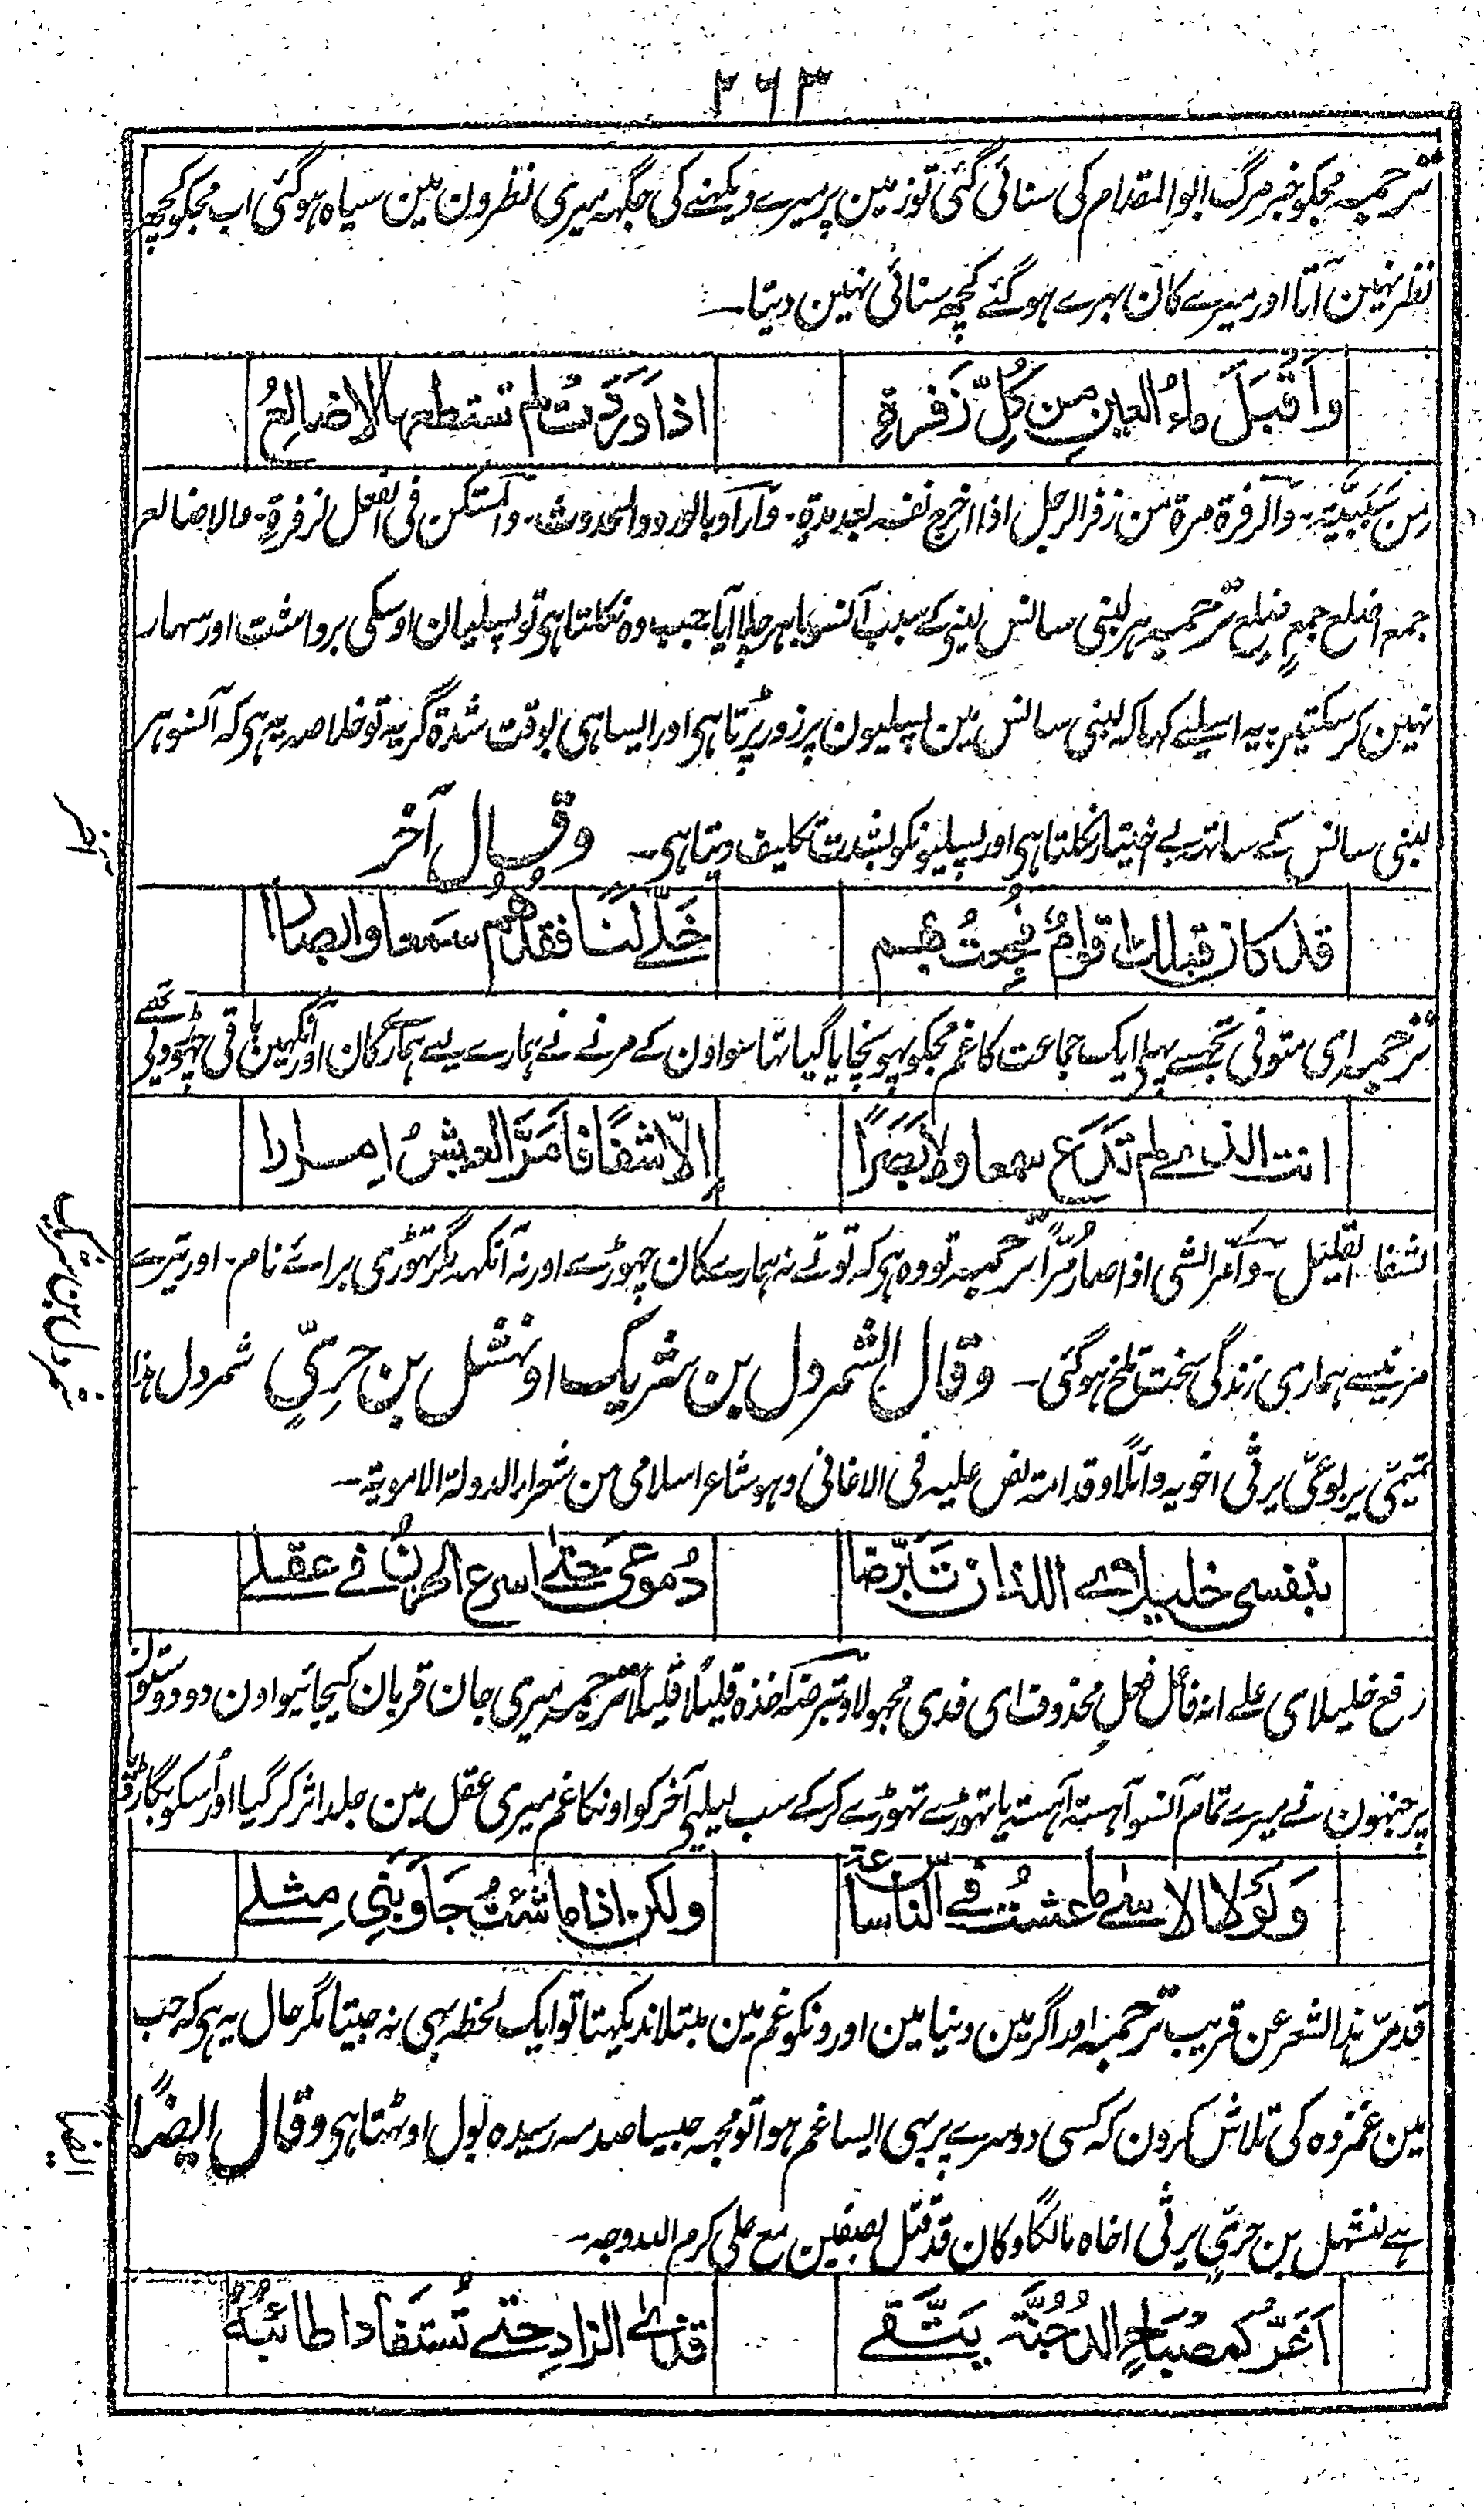 ۲۶۳
ترجمہ مجکو خبر مرگ ابو المقدام کی سنائی گئی تو زمین پر میرے دیکھنے کی جگہہ میری نظرون مین سیاہ ہوگئی اب مجکو کچھ
نظر نہین آتا اور میرے کان بہرے ہو گئے کچھ سنائی نہین دیتا۔
وَاَقْبَلَ ماءُ العينِ مِن كُلِّ زَفرةٍ اذا وَرَدَتْ لم تستطعها الاضالِعُ
من سَبَبِيَّة۔ وَالزفرة مرة من زفر الرجل اذا اخرج نفسہ بعد مدةٍ۔ وَاراد بالورود الحدوث۔ وَالمستكن فی الفعل لزفرةٍ۔ والاضالع
جمع اضلع جمع ضلع ترجمہ ہر لنبی سانس لینی کے سبب آنسو باہر چلا آیا جب وہ نکلتا ہی تو پسلیان اوسکی برداشت اور سہار
نہین کر سکتین یہ اسلیے کہا کہ لنبی سانس مین پسلیون پر زور پڑتا ہی اور ایسا ہی بوقت شدة گریہ تو خلاصہ یہ ہی کہ آنسو ہر
لنبی سانس کے ساتہ بے اختیار نکلتا ہی اور پسلیونکو بشدت تکلیف دیتا ہی۔ وقال آخر
آخر
قد كان قبلك اقوامٌ فُجِعتُ بهم خَلّٰى لَنَا فقدُهُم سَمعا وابصارا
ترجمہ ای متوفی تجھسے پہلے ایک جماعت کا غم مجکو پہونچایا گیا تہا سو اون کے مرنے نے ہمارے لیے ہمارے کان اور آنکہین باقی چھوڑدی تھے
انت الذى لم تَدَع سمعا ولا بَصَرًا اِلّا شفًا فاَمَرَّ العيشُ اِمرارا
الشفا القلیل۔ وَاَمَرّ الشی اذا صار مُرًّا ترجمہ تو وہ ہی کہ تونے نہ ہمارے کان چہوڑے اور نہ آنکہہ مگر تہوڑی براے نام۔ اور تیرے
مرنیسے ہماری زندگی سخت تلخ ہوگئی۔ وقال الشمردل بن شریک او نہشل بن حرِیٍّ شمردل ہذا
شمردل بن شریک
تمیمیٌّ یربوعیٌّ یرثی اخویہ وائلًا وقدامة نص علیہ فی الاغانی وہو شاعر اسلامی من شعراء الدولة الامویة۔
بنفسى خليلاى اللذان تَبَرَّضا دُموعى حَتّٰى اسرع الحزنُ فى عقلى
رفع خلیلای علے انہ فاعل فعلٍ محذوف ای فدی مجہولا وتبرضہ اخذہ قلیلًا قلیلًا ترجمہ میری جان قربان کیجائیو اون دو دوستون
پر جنہون نے میرے تمام آنسو آہستہ آہستہ یا تہوڑے تہوڑے کرکے سب لیلیے آخر کو اونکا غم میری عقل مین جلد اثر کر گیا اور اُسکو بگاڑ دیا
وَلَوْلا الاسٰى ما عشتُ فى الناس ساعةً ولكن اذا ما شئتُ جَاوَبَنِى مِثلى
قد مرّ ہذا الشعر عن قریب ترجمہ اور اگر مین دنیا مین اورونکو غم مین مبتلا ندیکہتا تو ایک لحظہ بھی نہ جیتا مگر حال یہ ہی کہ جب
مین غمزدہ کی تلاش کرون کہ کسی دوسرے پر بہی ایسا غم ہوا تو مجہہ جیسا صدمہ رسیدہ بول اوٹہتا ہی وقال ایضًا
ایضا
ہے لنہشل بن حرّیٍ یرثی اخاہ مالکا وکان قد قتل بصفین مع علی کرم اللہ وجہہ۔
اَغَرُّ كمصباحِ الدُّجُنَّة يَتَّقى قذى الزادِ حتى تُستفادا طائبُهُ